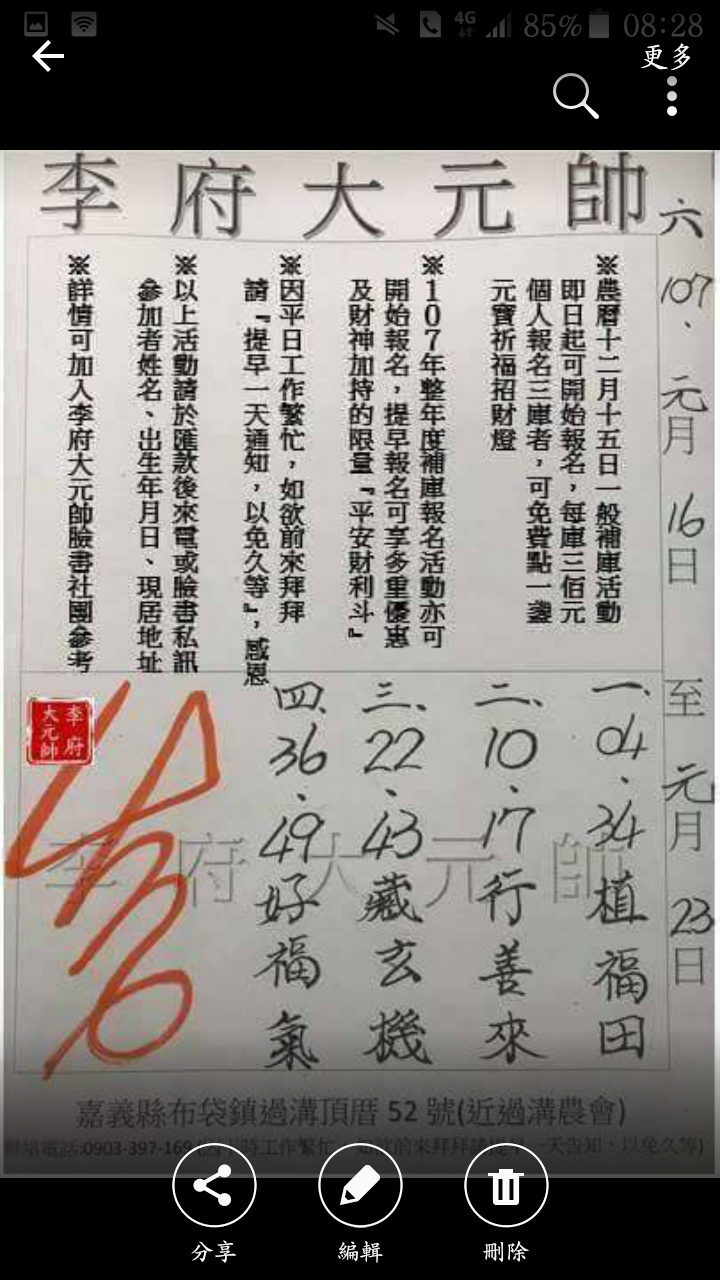 4G 85% 08:28
更多
李府大元帥
六
107、元月16日 至 元月23日
※農曆十二月十五日一般補庫活動
即日起可開始報名，每庫三佰元
個人報名三庫者，可免費點一盞
元寶祈福招財燈
※107年整年度補庫報名活動亦可
開始報名，提早報名可享多重優惠
及財神加持的限量『平安財利斗』
※因平日工作繁忙，如欲前來拜拜
請『提早一天通知，以免久等』，感恩
※以上活動請於匯款後來電或臉書私訊
參加者姓名、出生年月日、現居地址
※詳情可加入李府大元帥臉書社團參考
一、04、34植福田
二、10、17行善來
三、22、43藏玄機
四、36、49好福氣
李府
大元帥
李府大元帥
嘉義縣布袋鎮過溝頂厝 52 號(近過溝農會)
聯絡電話:0903-397-169 (因平時工作繁忙，如欲前來拜拜請提早一天告知，以免久等)
分享
編輯
刪除